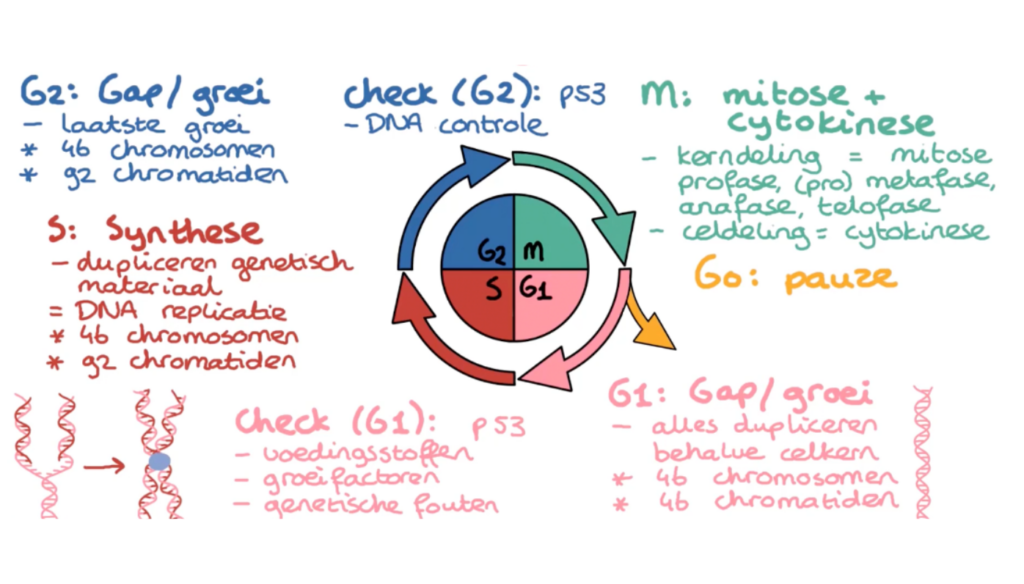 G2: Gap/groei
- laatste groei
* 46 chromosomen
* 92 chromatiden
check (G2): p53
- DNA controle
M: mitose +
cytokinese
- kerndeling = mitose
profase, (pro) metafase,
anafase, telofase
- celdeling = cytokinese
S: Synthese
- dupliceren genetisch
materiaal
= DNA replicatie
* 46 chromosomen
* 92 chromatiden
G2 M
S G1
G0: pauze
check (G1): p53
- voedingsstoffen
- groeifactoren
- genetische fouten
G1: Gap/groei
- alles dupliceren
behalve celkern
* 46 chromosomen
* 46 chromatiden